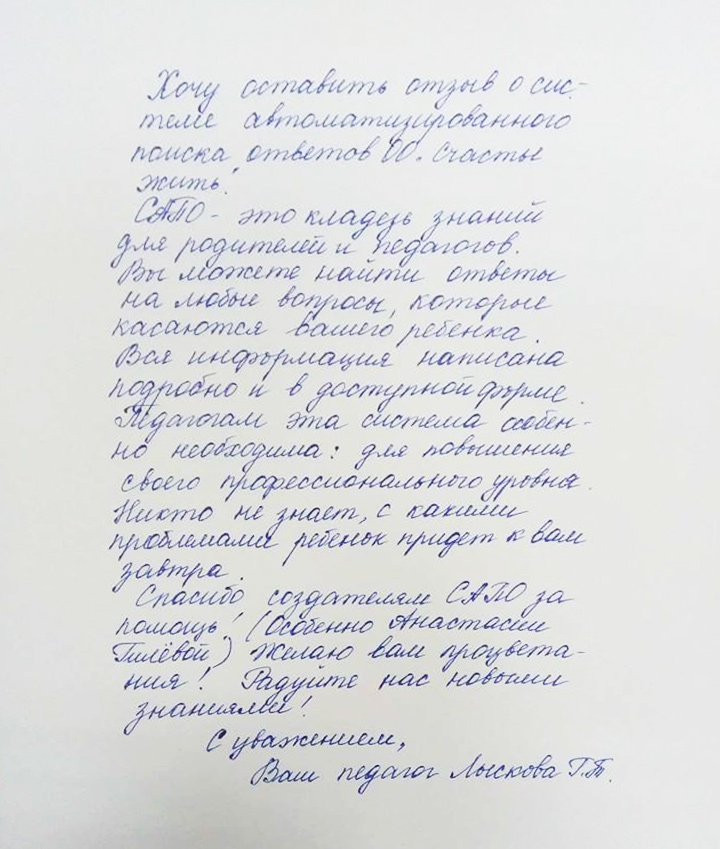 Хочу оставить отзыв о сис-
теме автоматизированного
поиска ответов 00. Счастье
жить!
САПО - это кладезь знаний
для родителей и педагогов.
Вы можете найти ответы
на любые вопросы, которые
касаются вашего ребенка.
Вся информация написана
подробно и в доступной форме.
Педагогам эта система особен-
но необходима: для повышения
своего профессионального уровня.
Никто не знает, с какими
проблемами ребенок придет к вам
завтра.
Спасибо создателям САПО за
помощь! (Особенно Анастасии
Гилёвой) Желаю вам процвета-
ния! Радуйте нас новыми
знаниями!
С уважением,
Ваш педагог Лыскова Г.Т.